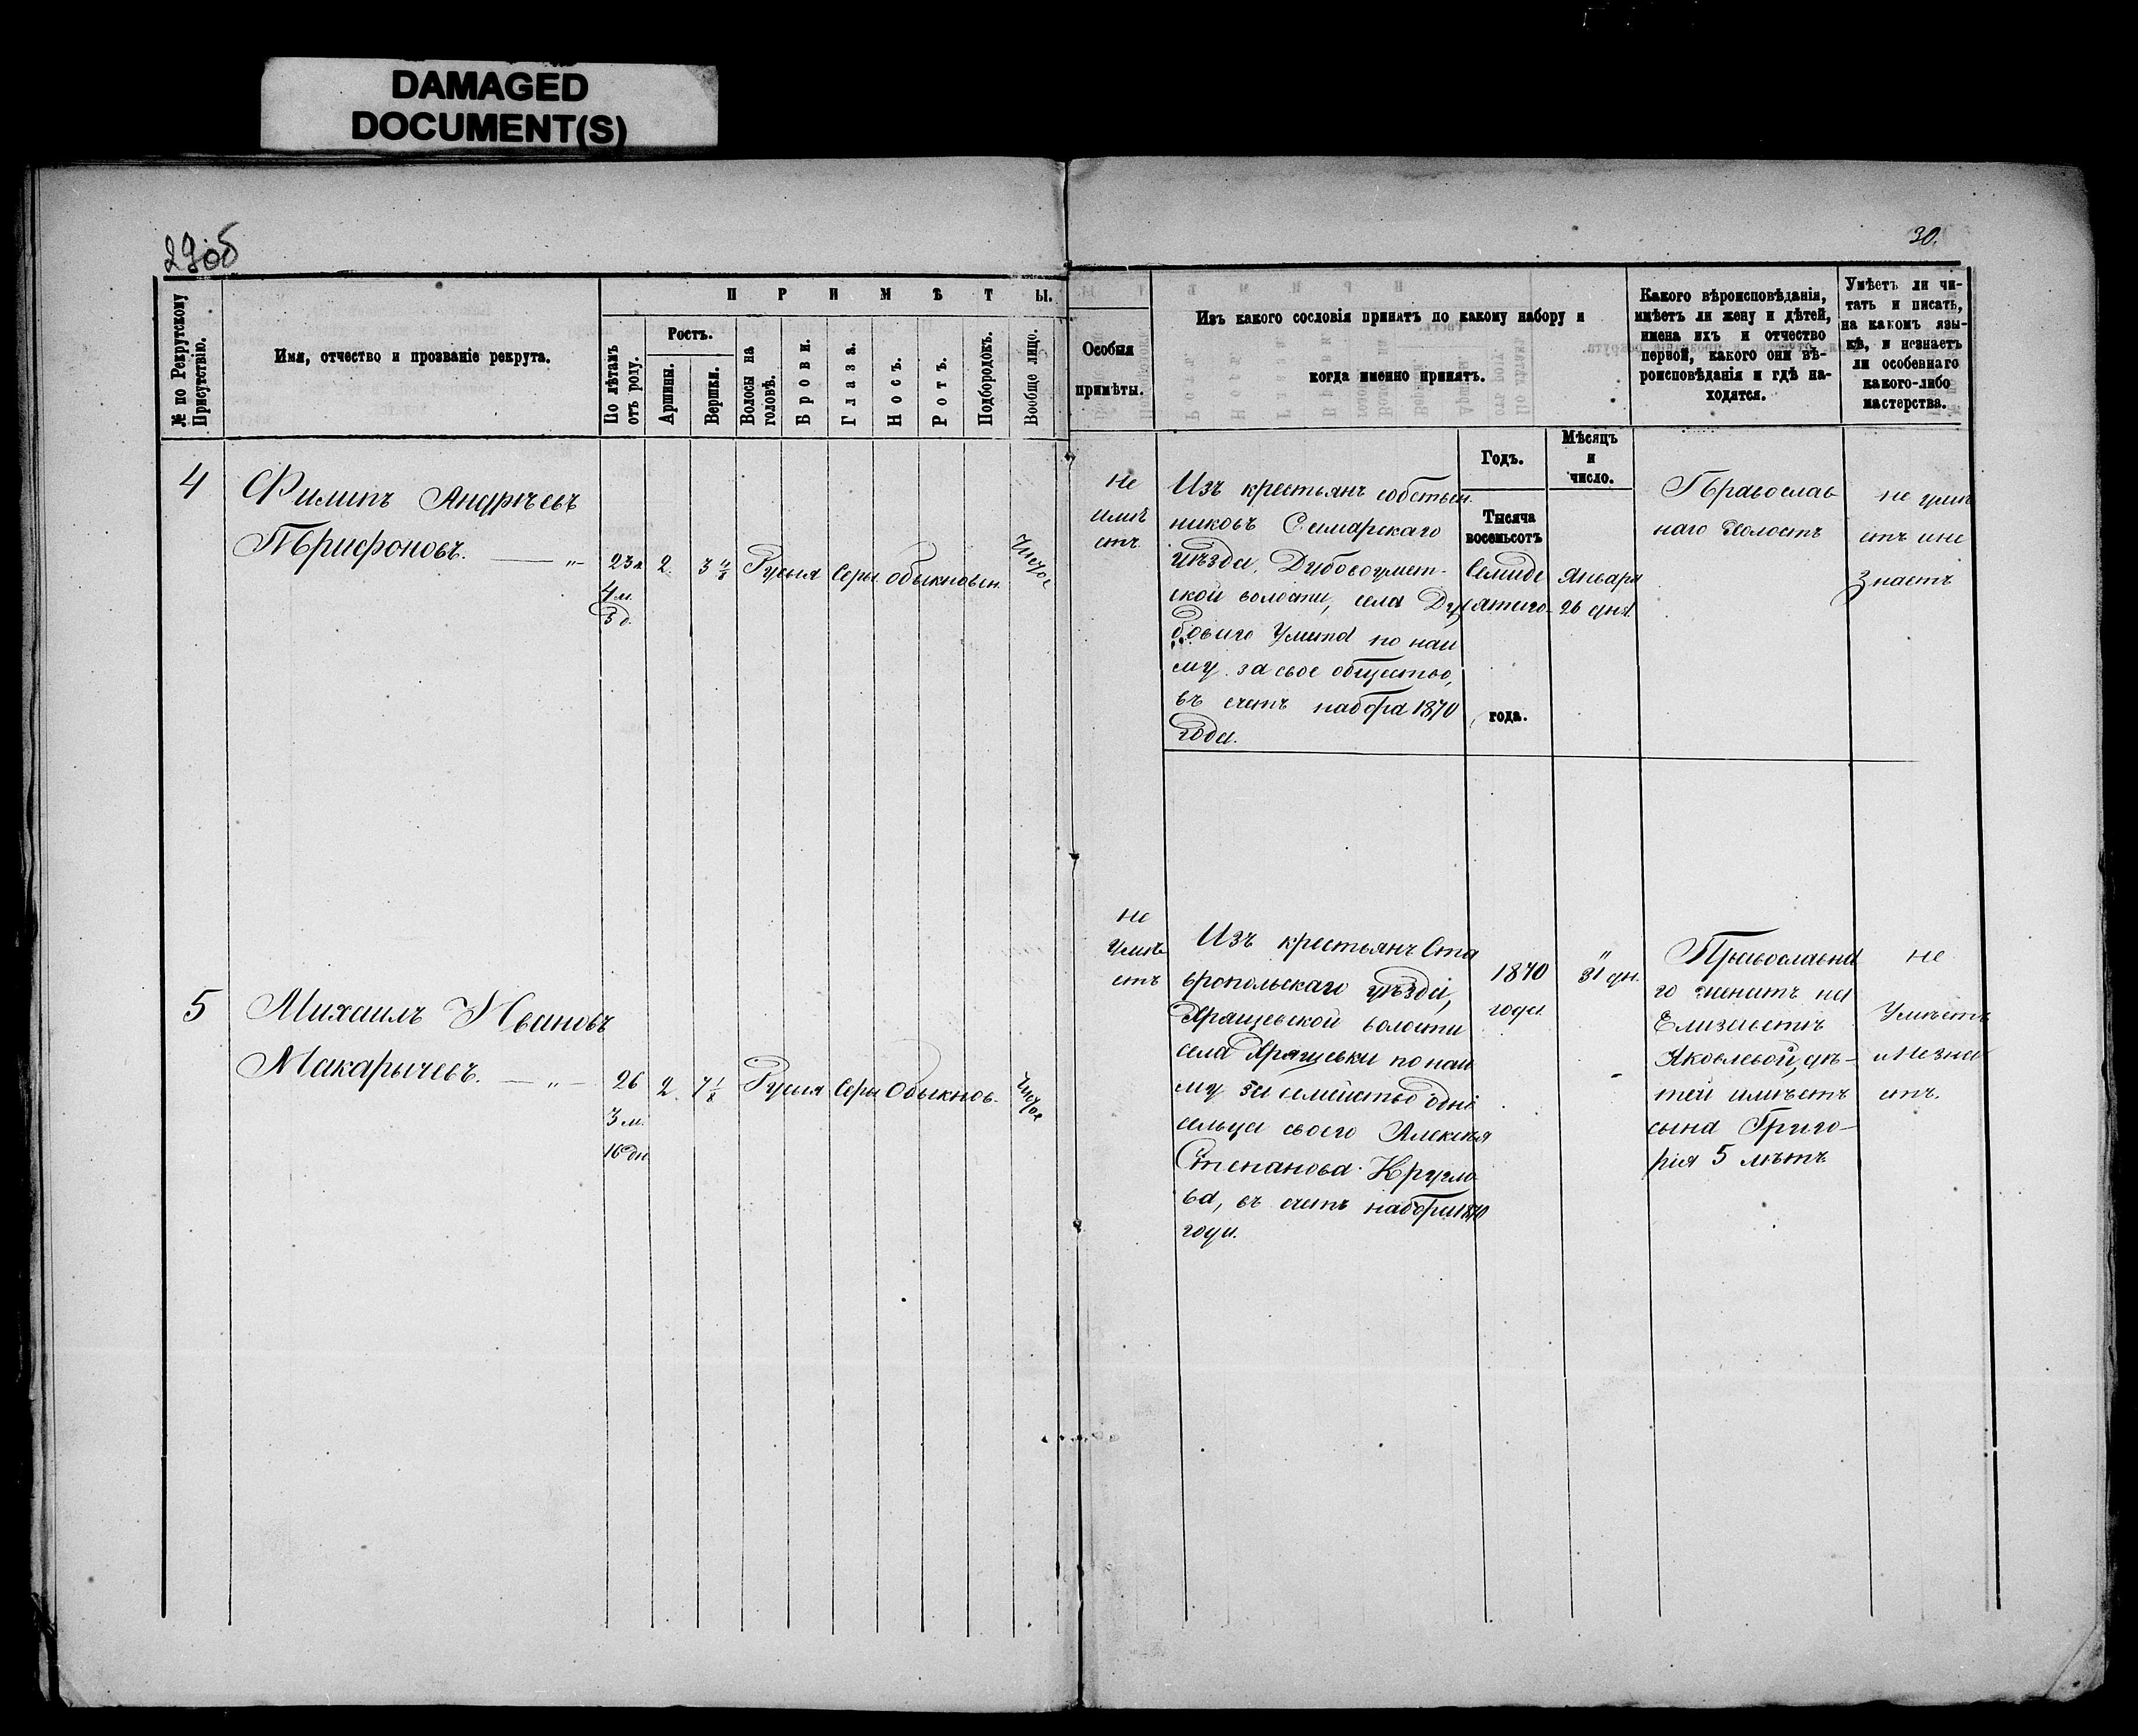 DAMAGED
DOCUMENT(S)
29об
30.
№ по Рекрутскому
Присутствію.
Имя, отчество и прозваніе рекрута.
П Р И М Ѣ Т Ы.
По лѣтамъ
отъ роду.
Ростъ.
Аршины.
Вершки.
Волосы на
головѣ.
Брови.
Глаза.
Носъ.
Ротъ.
Подбородокъ.
Вообще лицо.
Особыя
примѣты.
Изъ какого сословія принятъ по какому набору и
когда именно принятъ.
Какого вѣроисповѣданія,
имѣетъ ли жену и дѣтей,
имена ихъ и отчество
первой, какого они вѣ-
роисповѣданія и гдѣ на-
ходятся.
Умѣетъ ли чи-
тать и писать,
на какомъ язы-
кѣ, и незнаетъ
ли особеннаго
какого-либо
мастерства.
Годъ.
Мѣсяцъ
и
число.
4
Филипъ Андрѣевъ
Трифоновъ.
23 л
4 м.
3 д.
2
3 4/8
Русыя
Серы
Обыкновен.
Чистое
Не
имѣ
етъ
Изъ крестьянъ собствен
никовъ Самарскаго
уѣзда, Дубовоумет-
ской волости, села Ду
боваго Умета по най
му за свое общество,
въ счетъ набора 1870
года.
Тысяча
восемьсотъ
Семиде
сятаго
года.
Января
26 дня
Православ
наго Холостъ
не умѣ
етъ и не
знаетъ
5
Михаилъ Ивановъ
Макарычевъ.
26
3 м.
16 дн
2
7 1/8
Русыя
Серы
Обыкнов.
Чистое
не
Имѣ
етъ
Изъ крестьянъ Ста
вропольскаго уѣзда,
Хрящевской волости
села Хрящевки по най
му за семейство одно
сельца своего Алексѣя
Степанова Кругло
ва, въ счетъ набора 1870
года.
1870
года
"
31 дн.
Православна
го женатъ на
Елизаветѣ
Яковлевой, дѣ-
тей имѣетъ
сына Григо-
рія 5 лѣтъ
не
Умѣетъ
и Незна
етъ.